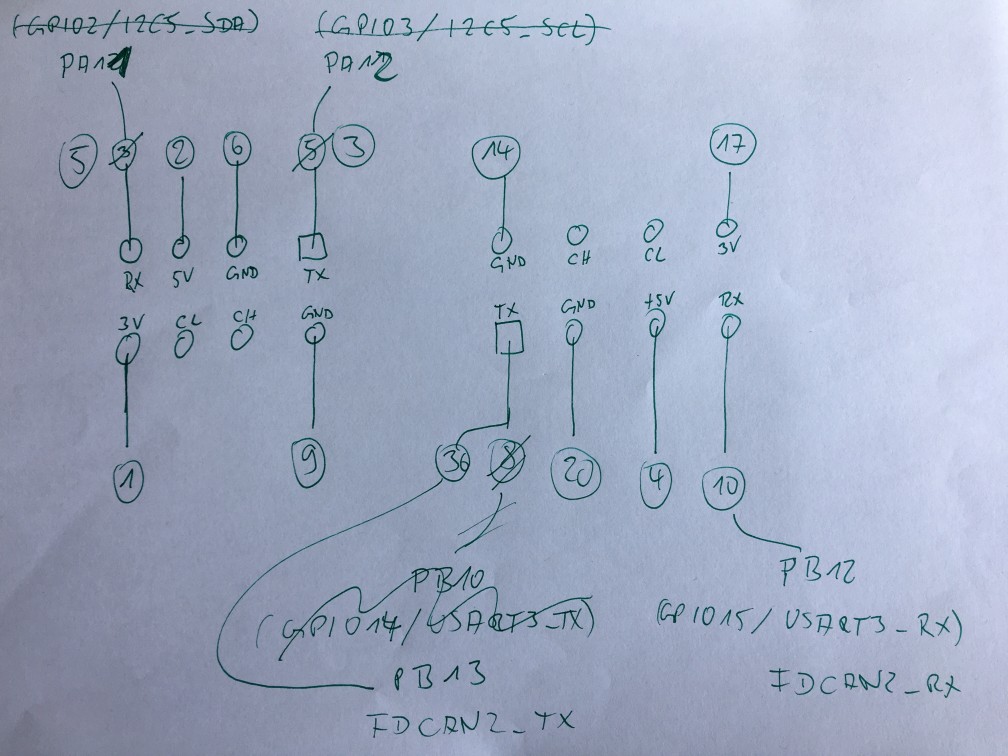 (GPIO2/I2C5_SDA) (GPIO3/I2C5_SCL)
PA11 PA12
5 3 2 6 5 3 14 17
RX 5V GND TX GND CH CL 3V
3V CL CH GND TX GND +5V RX
1 9 36 8 20 4 10
PB10 PB12
(GPIO14/USART3_TX) (GPIO15/USART3_RX)
PB13 FDCAN2_RX
FDCAN2_TX